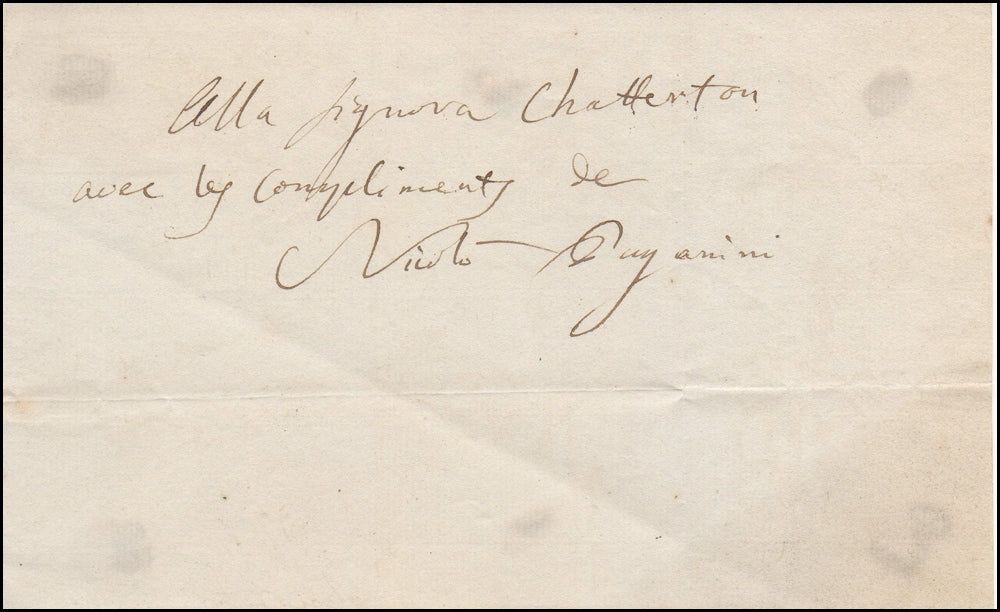 Alla Signora Chatterton
avec les compliments de
Nicolò Paganini